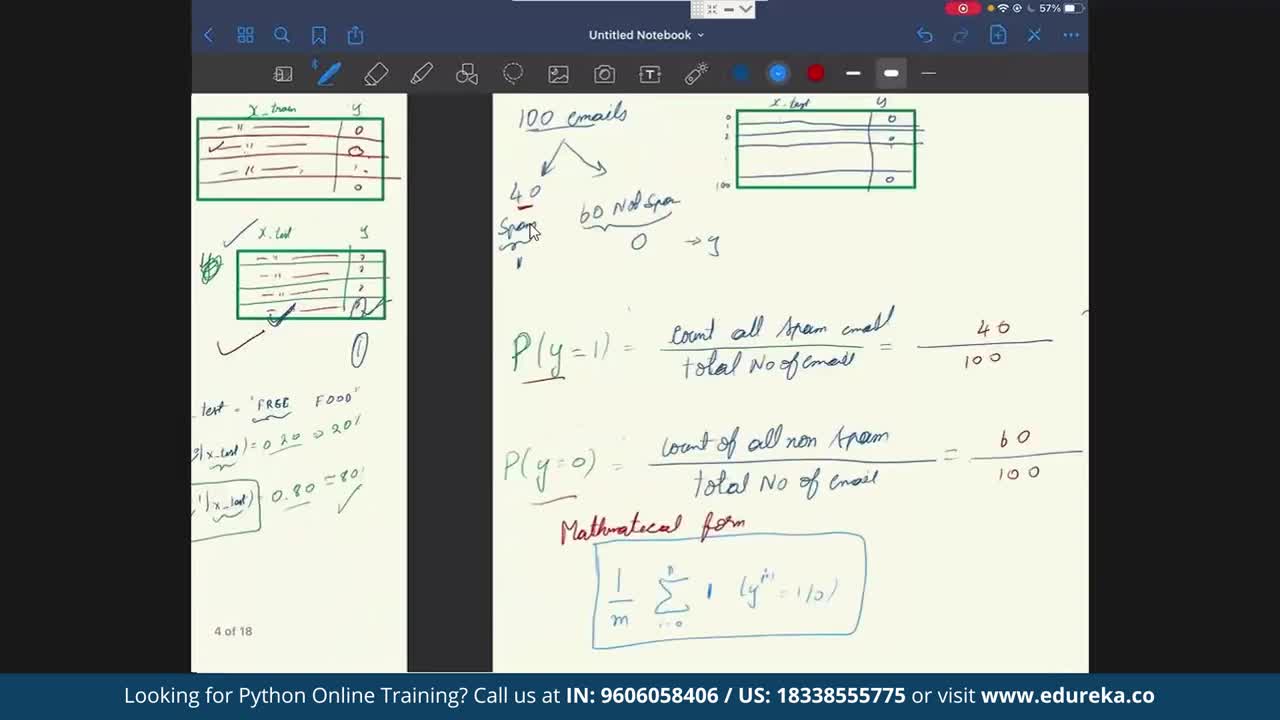 57%
Untitled Notebook
x_train y
0
0
1
0
x_test y
?
?
?
?
1
_test = "FREE FOOD"
(x_test) = 0.20 ⇒ 20%
1|x_test) = 0.80 = 80%
4 of 18
100 emails
40
Spam
1
60 Not Spam
0 → y
x_test y
0 0
1
2 0
100 0
P(y=1) = count all spam email / total No of email = 40 / 100
P(y=0) = count of all non spam / total No of email = 60 / 100
Mathmatecal form
1/m Σ i=0 n 1 (y = 1/0)
Looking for Python Online Training? Call us at IN: 9606058406 / US: 18338555775 or visit www.edureka.co